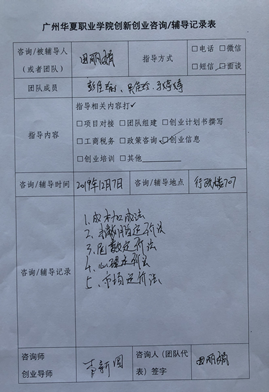 广州华夏职业学院创新创业咨询/辅导记录表
咨询/被辅导人
(或者团队)
田丽婧
指导方式
□电话 □微信
□短信 ☑面谈
团队成员
指导内容
指导相关内容打✓
□项目对接 □团队组建 □创业计划书撰写
□工商税务 □政策咨询 ☑创业信息
□创业培训 □其他
咨询/辅导时间
2019年12月7日
咨询/辅导地点
行政楼707
咨询/辅导记录
1.成本加成法
3.
4.心理定价法
5、市场定价法
咨询师
创业导师
李新国
咨询人(团队代
表)签字
田丽婧